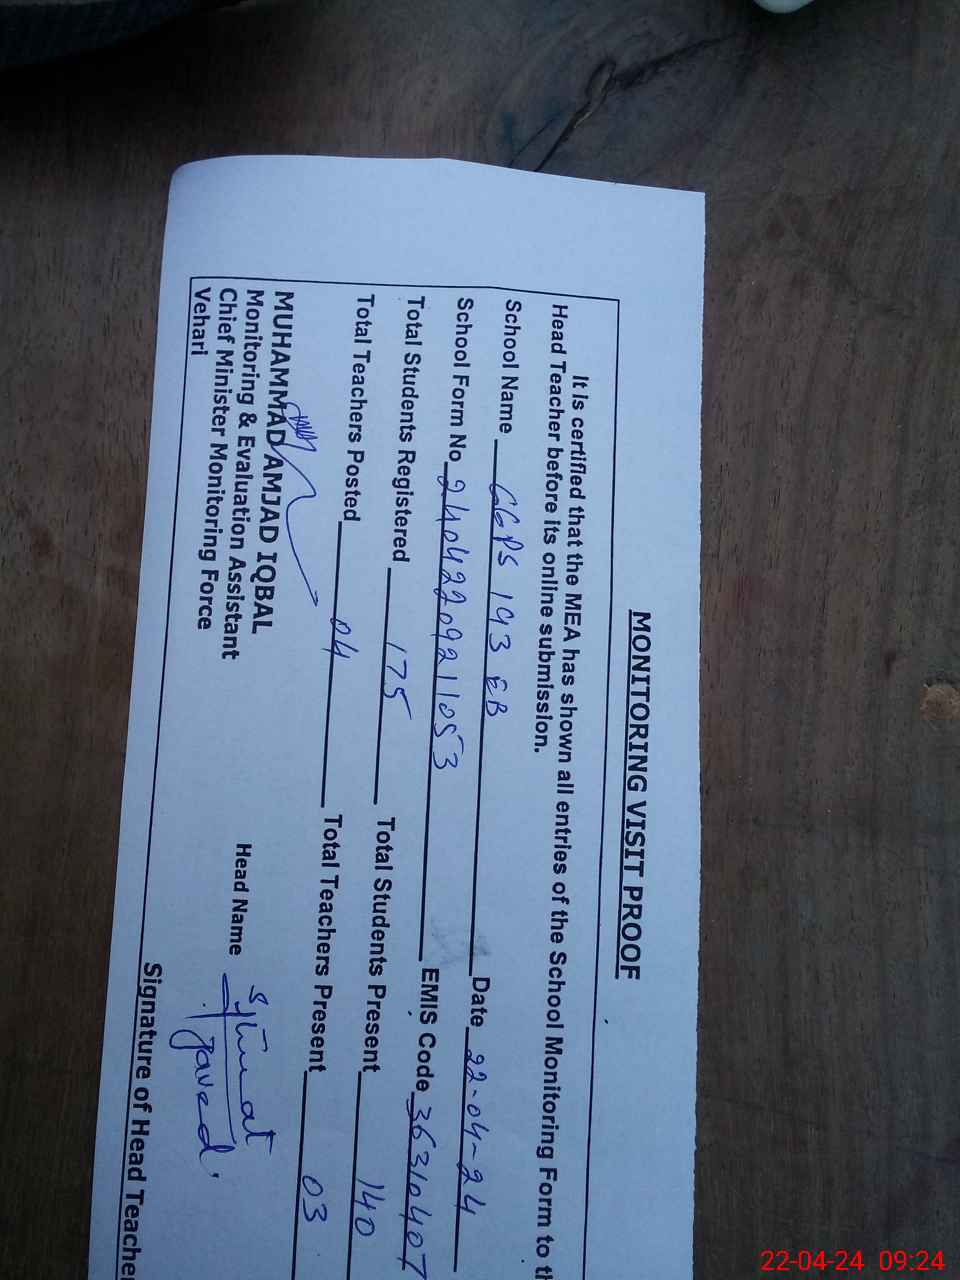 MONITORING VISIT PROOF
It is certified that the MEA has shown all entries of the School Monitoring Form to th
Head Teacher before its online submission.
School Name GGPS 193 EB Date 22-04-24
School Form No 24042209211053 EMIS Code 3631040
Total Students Registered 175 Total Students Present 140
Total Teachers Posted 04 Total Teachers Present 03
MUHAMMAD AMJAD IQBAL
Monitoring & Evaluation Assistant
Chief Minister Monitoring Force
Vehari
Head Name Javed
Signature of Head Teacher
22-04-24 09:24